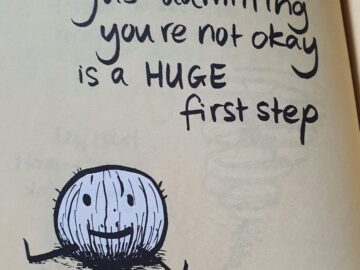 just admitting
you're not okay
is a HUGE
first step